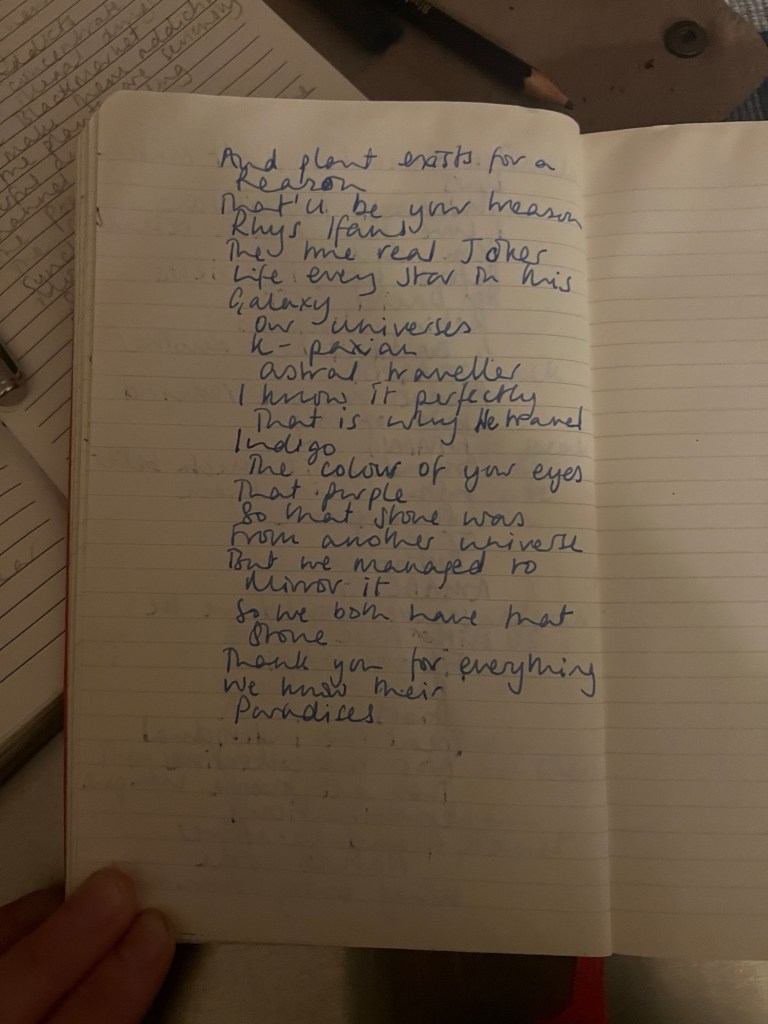 addicts
concentrate
Illegal
Blackmarket
make them addicts
me
And plant exists for a
Reason
That'll be your treason
Rhys Ifans
The true real Joker
Life every star in this
Galaxy
Our universes
K-paxian
astral traveller
I know it perfectly
That is why He travel
Indigo
The colour of your eyes
That purple
So that stone was
From another universe
But we managed to
Mirror it
So we both have that
Stone
Thank you for everything
We know their
Paradises